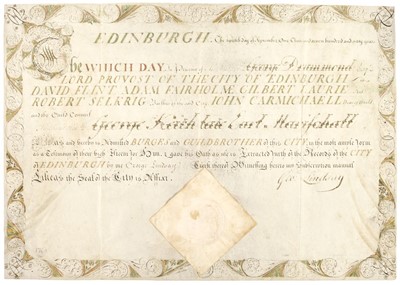 EDINBURGH. The day of One thousand hundred and sixty
THE WHICH DAY In Presence of George Drummond Esqr
LORD PROVOST OF THE CITY OF EDINBURGH
DAVID FLINT ADAM FAIRHOLME GILBERT LAURIE and
ROBERT SELKRIG Baillies of the said City JOHN CARMICHAELL
and the Gild Council
George Keith late Earl Marischall
Is Made and hereby is Admitted BURGES and GUILDBROTHER of this CITY in the most ample form
as a Testimony of their high Esteem for Him & gave his Oath as use is Extracted furth of the Records of the CITY
of EDINBURGH by me George Lindsay Clerk thereof Witnessing hereto my Subscription manual
Likeas the Seal of the City is Affixt
Geo Lindsay